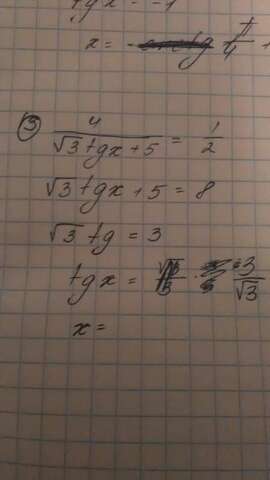 tgx = -1
x = - π/4 +
③ 4/(√3 tgx + 5) = 1/2
√3 tgx + 5 = 8
√3 tg = 3
tgx = 3/√3
x =